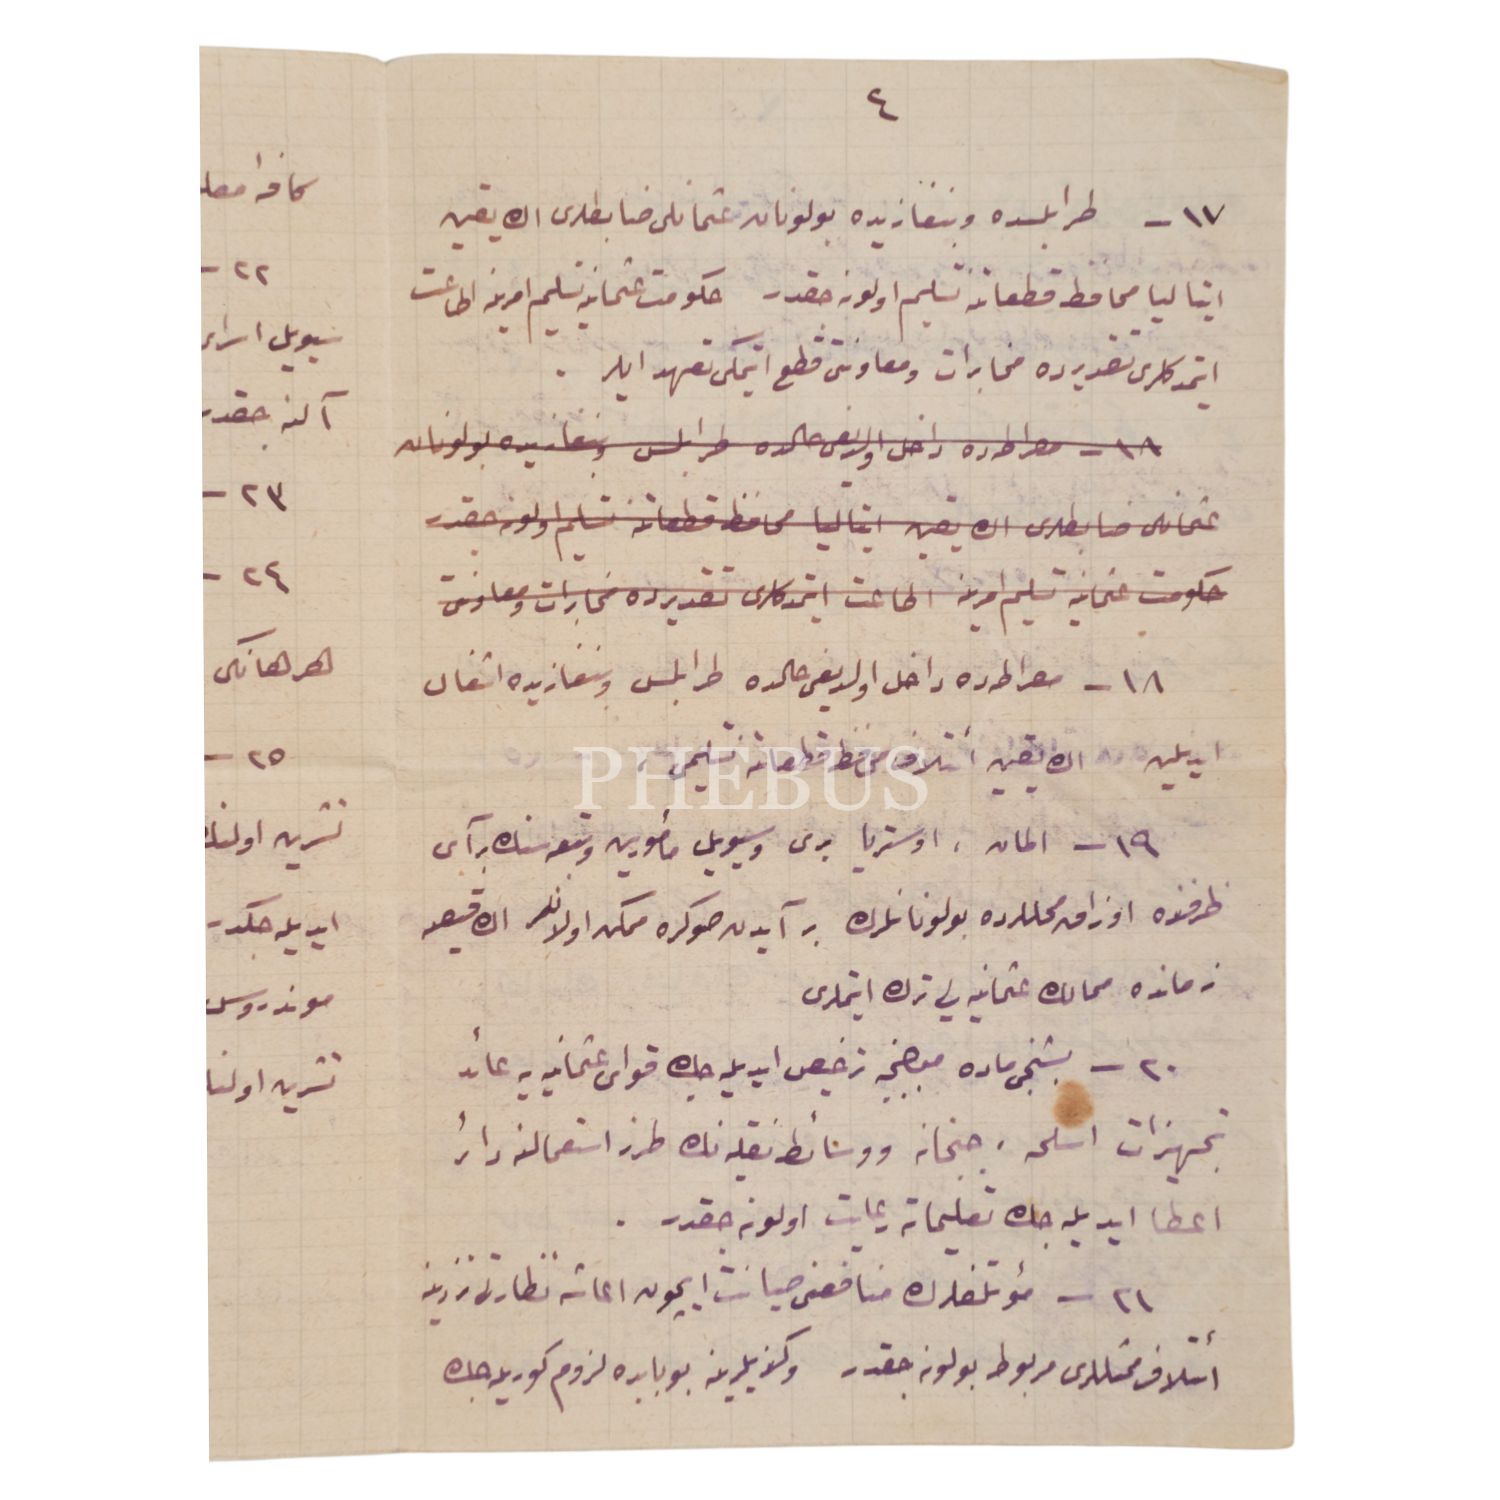 ٤
١٧ – طرابلسده و بنغازیده بولونان عثمانلی ضابطلری اك یقین
ایتالیا محافظ قطعاتنه تسلیم اولونه‌جقدر حکومت عثمانیه تسلیم امرینه اطاعت
ایتمدکلری تقدیرده مخابرات و معاونتی قطع ایتمکی تعهد ایلر .
١٨ – مصراطه‌ده داخل اولدیغی حالده طرابلس و بنغازیده بولونان
عثمانلی ضابطلری اك یقین ایتالیا محافظ قطعاتنه تسلیم اولونه‌جقدر
حکومت عثمانیه تسلیم امرینه اطاعت ایتمدکلری تقدیرده مخابرات و معاونتی
١٨ – مصراطه‌ده داخل اولدیغی حالده طرابلس و بنغازیده اشغال
ایدیلن اك یقین ائتلاف محافظ قطعاتنه تسلیمی .
١٩ – المان ، اوستریا بری و سیویل مأمورین و تبعه‌سنك بر آی
ظرفنده اوزاق محللرده بولونانلرك بر آیدن صوکره ممکن اولانلر اك قیصه
زمانده ممالك عثمانیه‌یی ترك ایتملری
٢٠ – بشنجی ماده موجبنجه ترخیص ایدیله‌جك قوای عثمانیه‌یه عائد
تجهیزات اسلحه ، جبخانه و وسائط نقلیه‌نك طرز استعمالنه دائر
اعطا ایدیله‌جك تعلیماته رعایت اولونه‌جقدر .
٢١ – مؤتلفلرك منافعنی صیانت ایچون اعاشه نظارتی نزدینه
ائتلاف ممثللری مربوط بولونه‌جقدر و کندیلرینه بو بابده لزوم کوریله‌جك
كافه معلو
٢٢ –
سیویل اسرای
آلنه‌جقدر
٢٣ –
٢٤ –
هر هانکی
٢٥ –
تشرین اولنك
ایدیله‌جکدر
موندروس
تشرین اولنك
PHEBUS